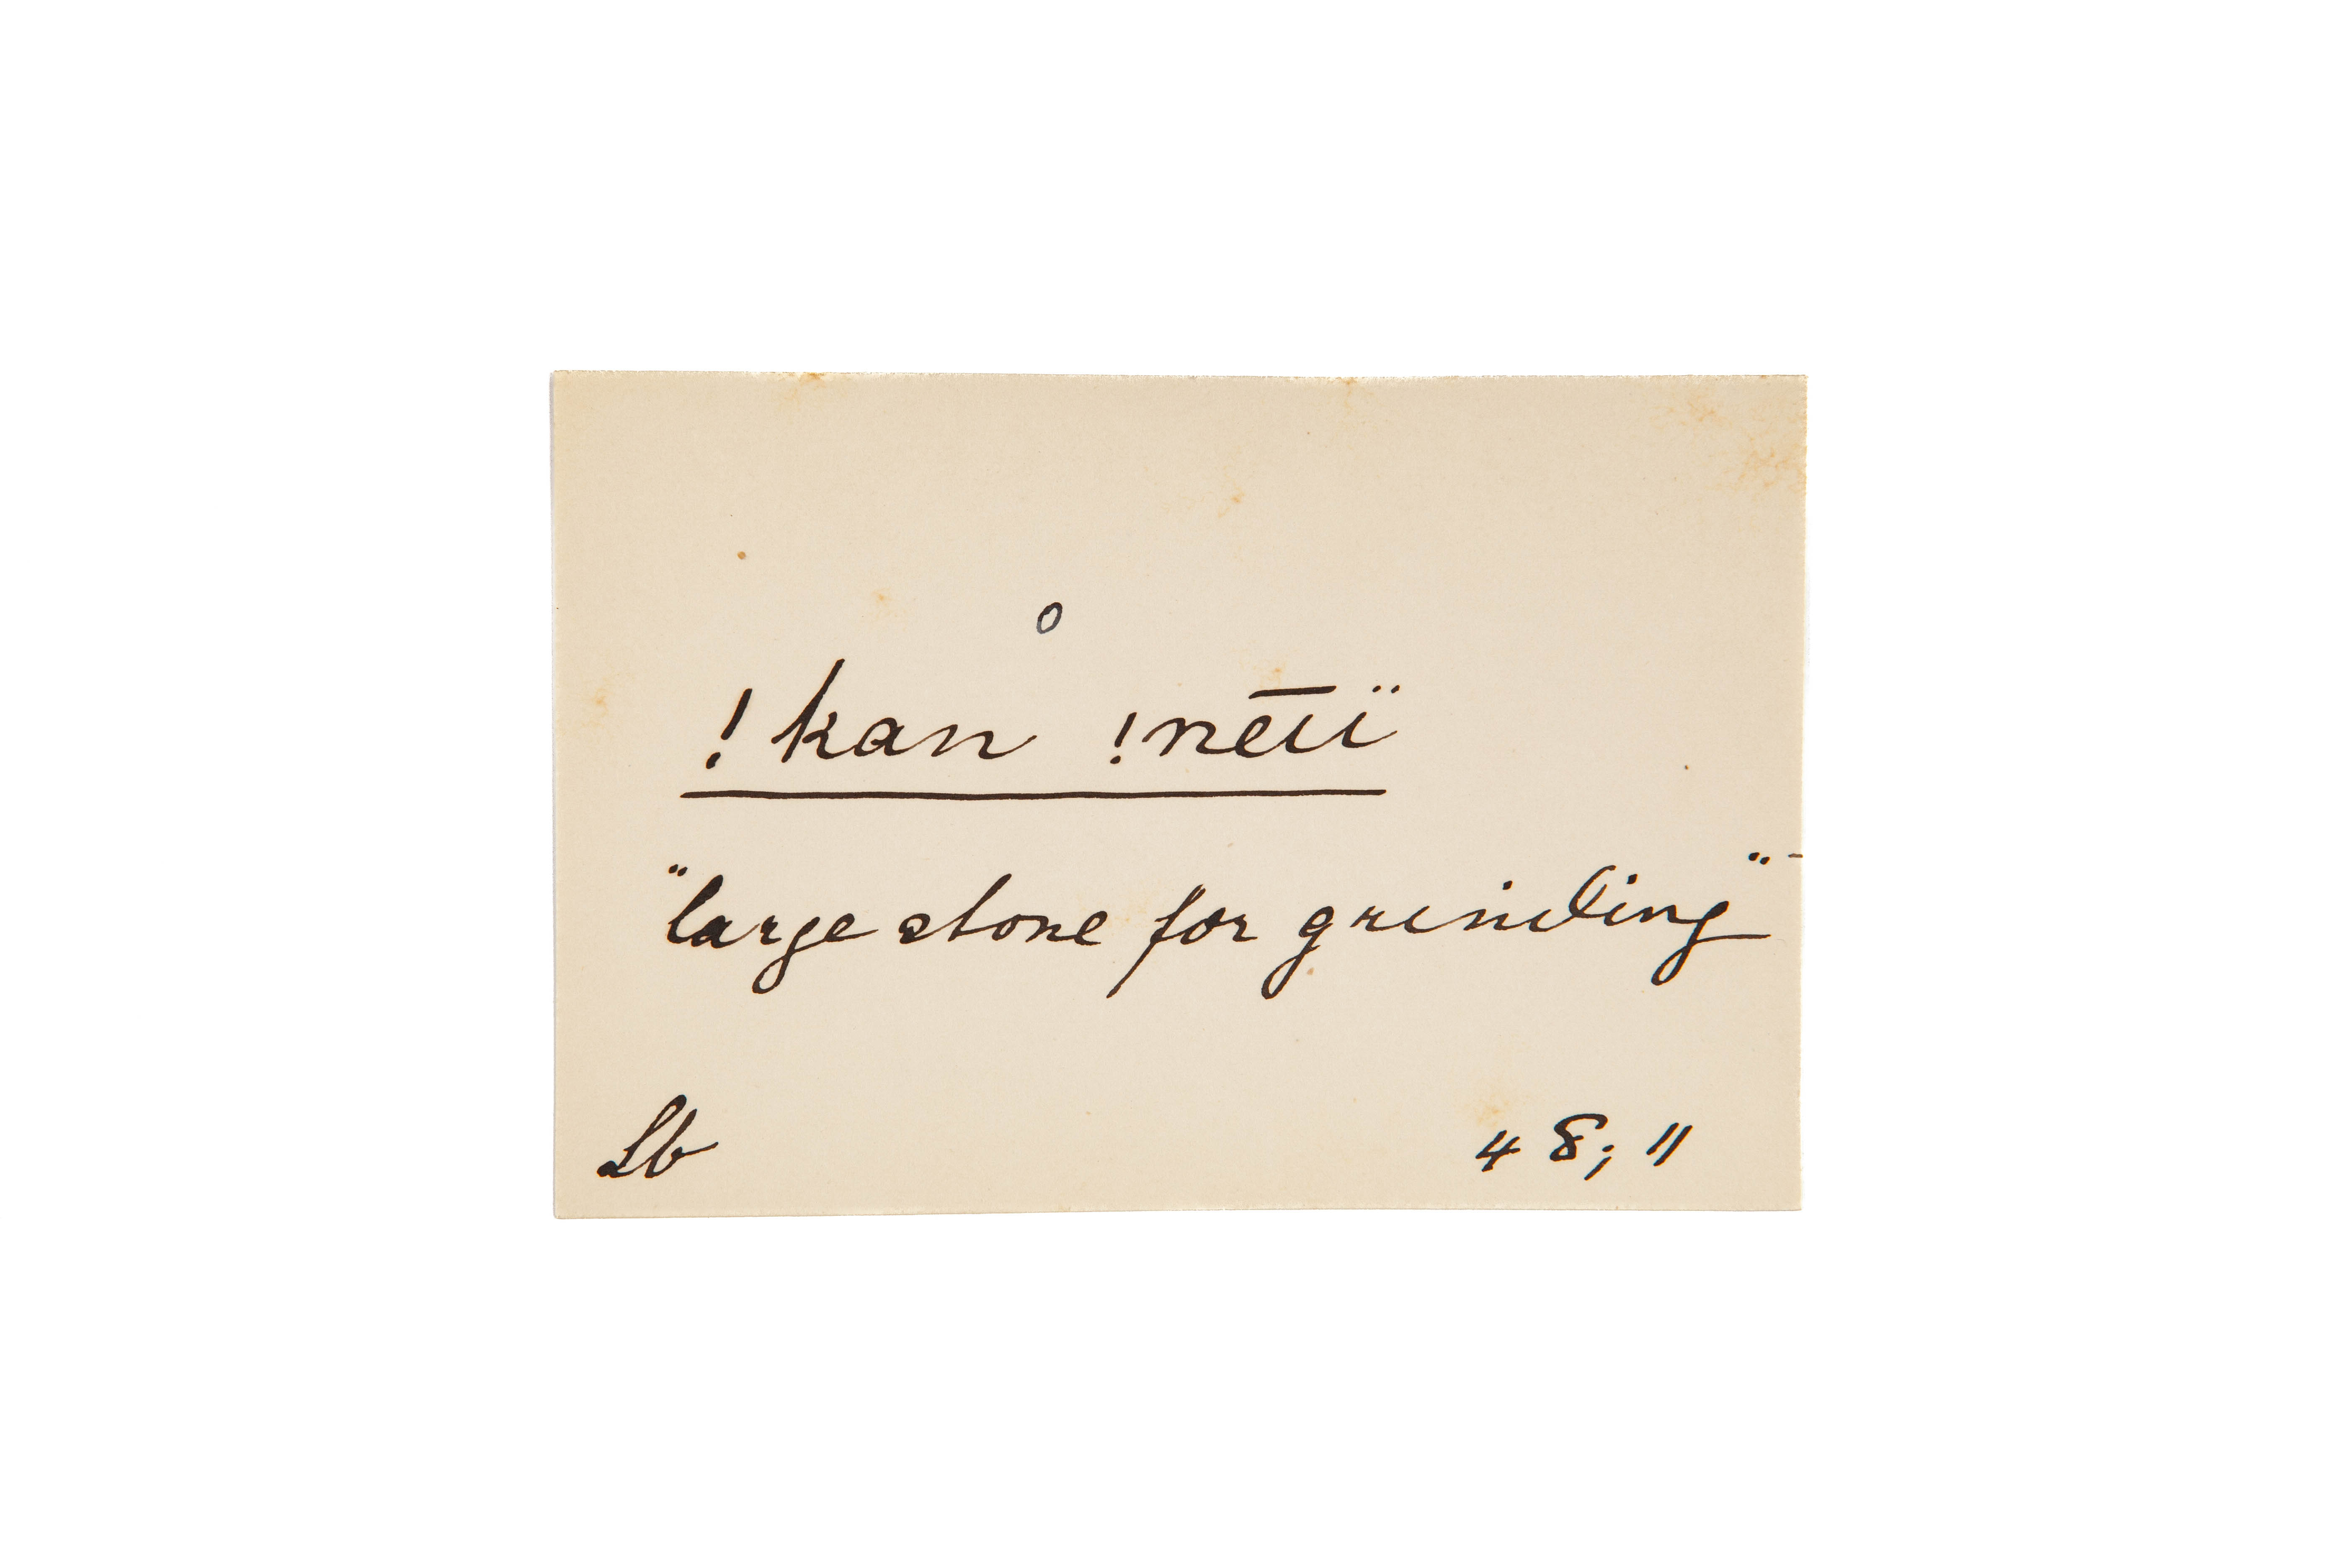 o
!kan !nēīï
"large stone for grinding"
Lb 48; 11